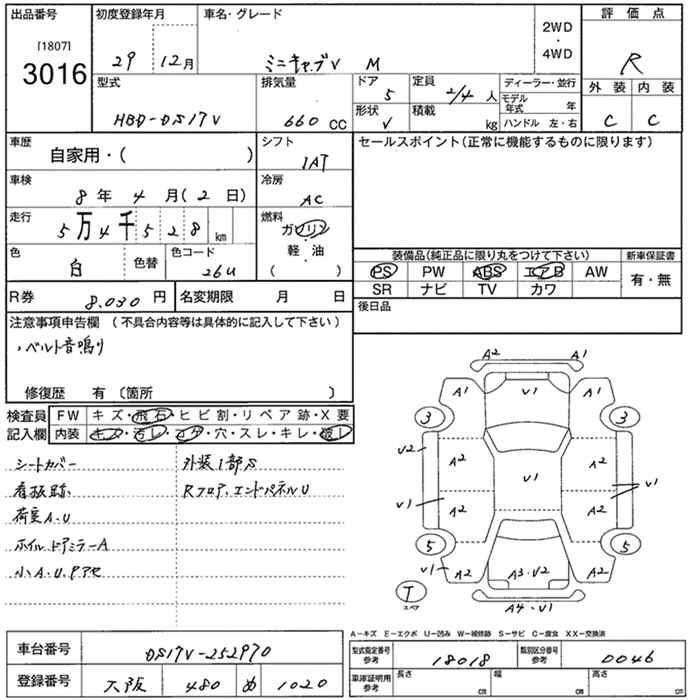 出品番号
[1807]
3016
初度登録年月
29 12月
車名・グレード
ミニキャブV M
2WD
・
4WD
評価点
R
外装 内装
C C
型式
HBD-DS17V
排気量
660 CC
ドア
5
定員
2/4 人
形状
V
積載
kg
ディーラー・並行
モデル年式 年
ハンドル 左・右
車歴
自家用・( )
シフト
1AT
セールスポイント(正常に機能するものに限ります)
車検
8年 4月(2日)
冷房
AC
走行
5万4千528km
燃料
ガソリン
・
軽・油
( )
色
白
色替
色コード
26U
装備品(純正品に限り丸をつけて下さい)
新車保証書
PS PW ABS エアB AW
SR ナビ TV カワ
有・無
R券 8,030円
名変期限 月 日
後日品
注意事項申告欄 (不具合内容等は具体的に記入して下さい)
、ベルト音鳴り
修復歴 有 〔箇所 〕
検査員
記入欄
FW キズ・飛石・ヒビ割・リペア跡・X要
内装 キズ・汚レ・コゲ・穴・スレ・キレ・破レ
シートカバー
看板跡
荷室A.U
ホイル ドアミラーA
小A.U.Pアセ
外装1部S
Rフロア、エンドパネルU
A2 A1
A1 V1 A1
3 3
V2 A2 A2
V1 V1 V1
A2 A2
5 5
V1 A2 A3・V2 A2
T
スペア
A4・V1
A-キズ E-エクボ U-凹み W-補修跡 S-サビ C-腐食 XX-交換済
車台番号 DS17V-252970
登録番号 大阪 480 め 1020
型式指定番号
参考
18018
類別区分番号
参考
0046
車庫証明用
参考
長さ cm
幅 cm
高さ cm